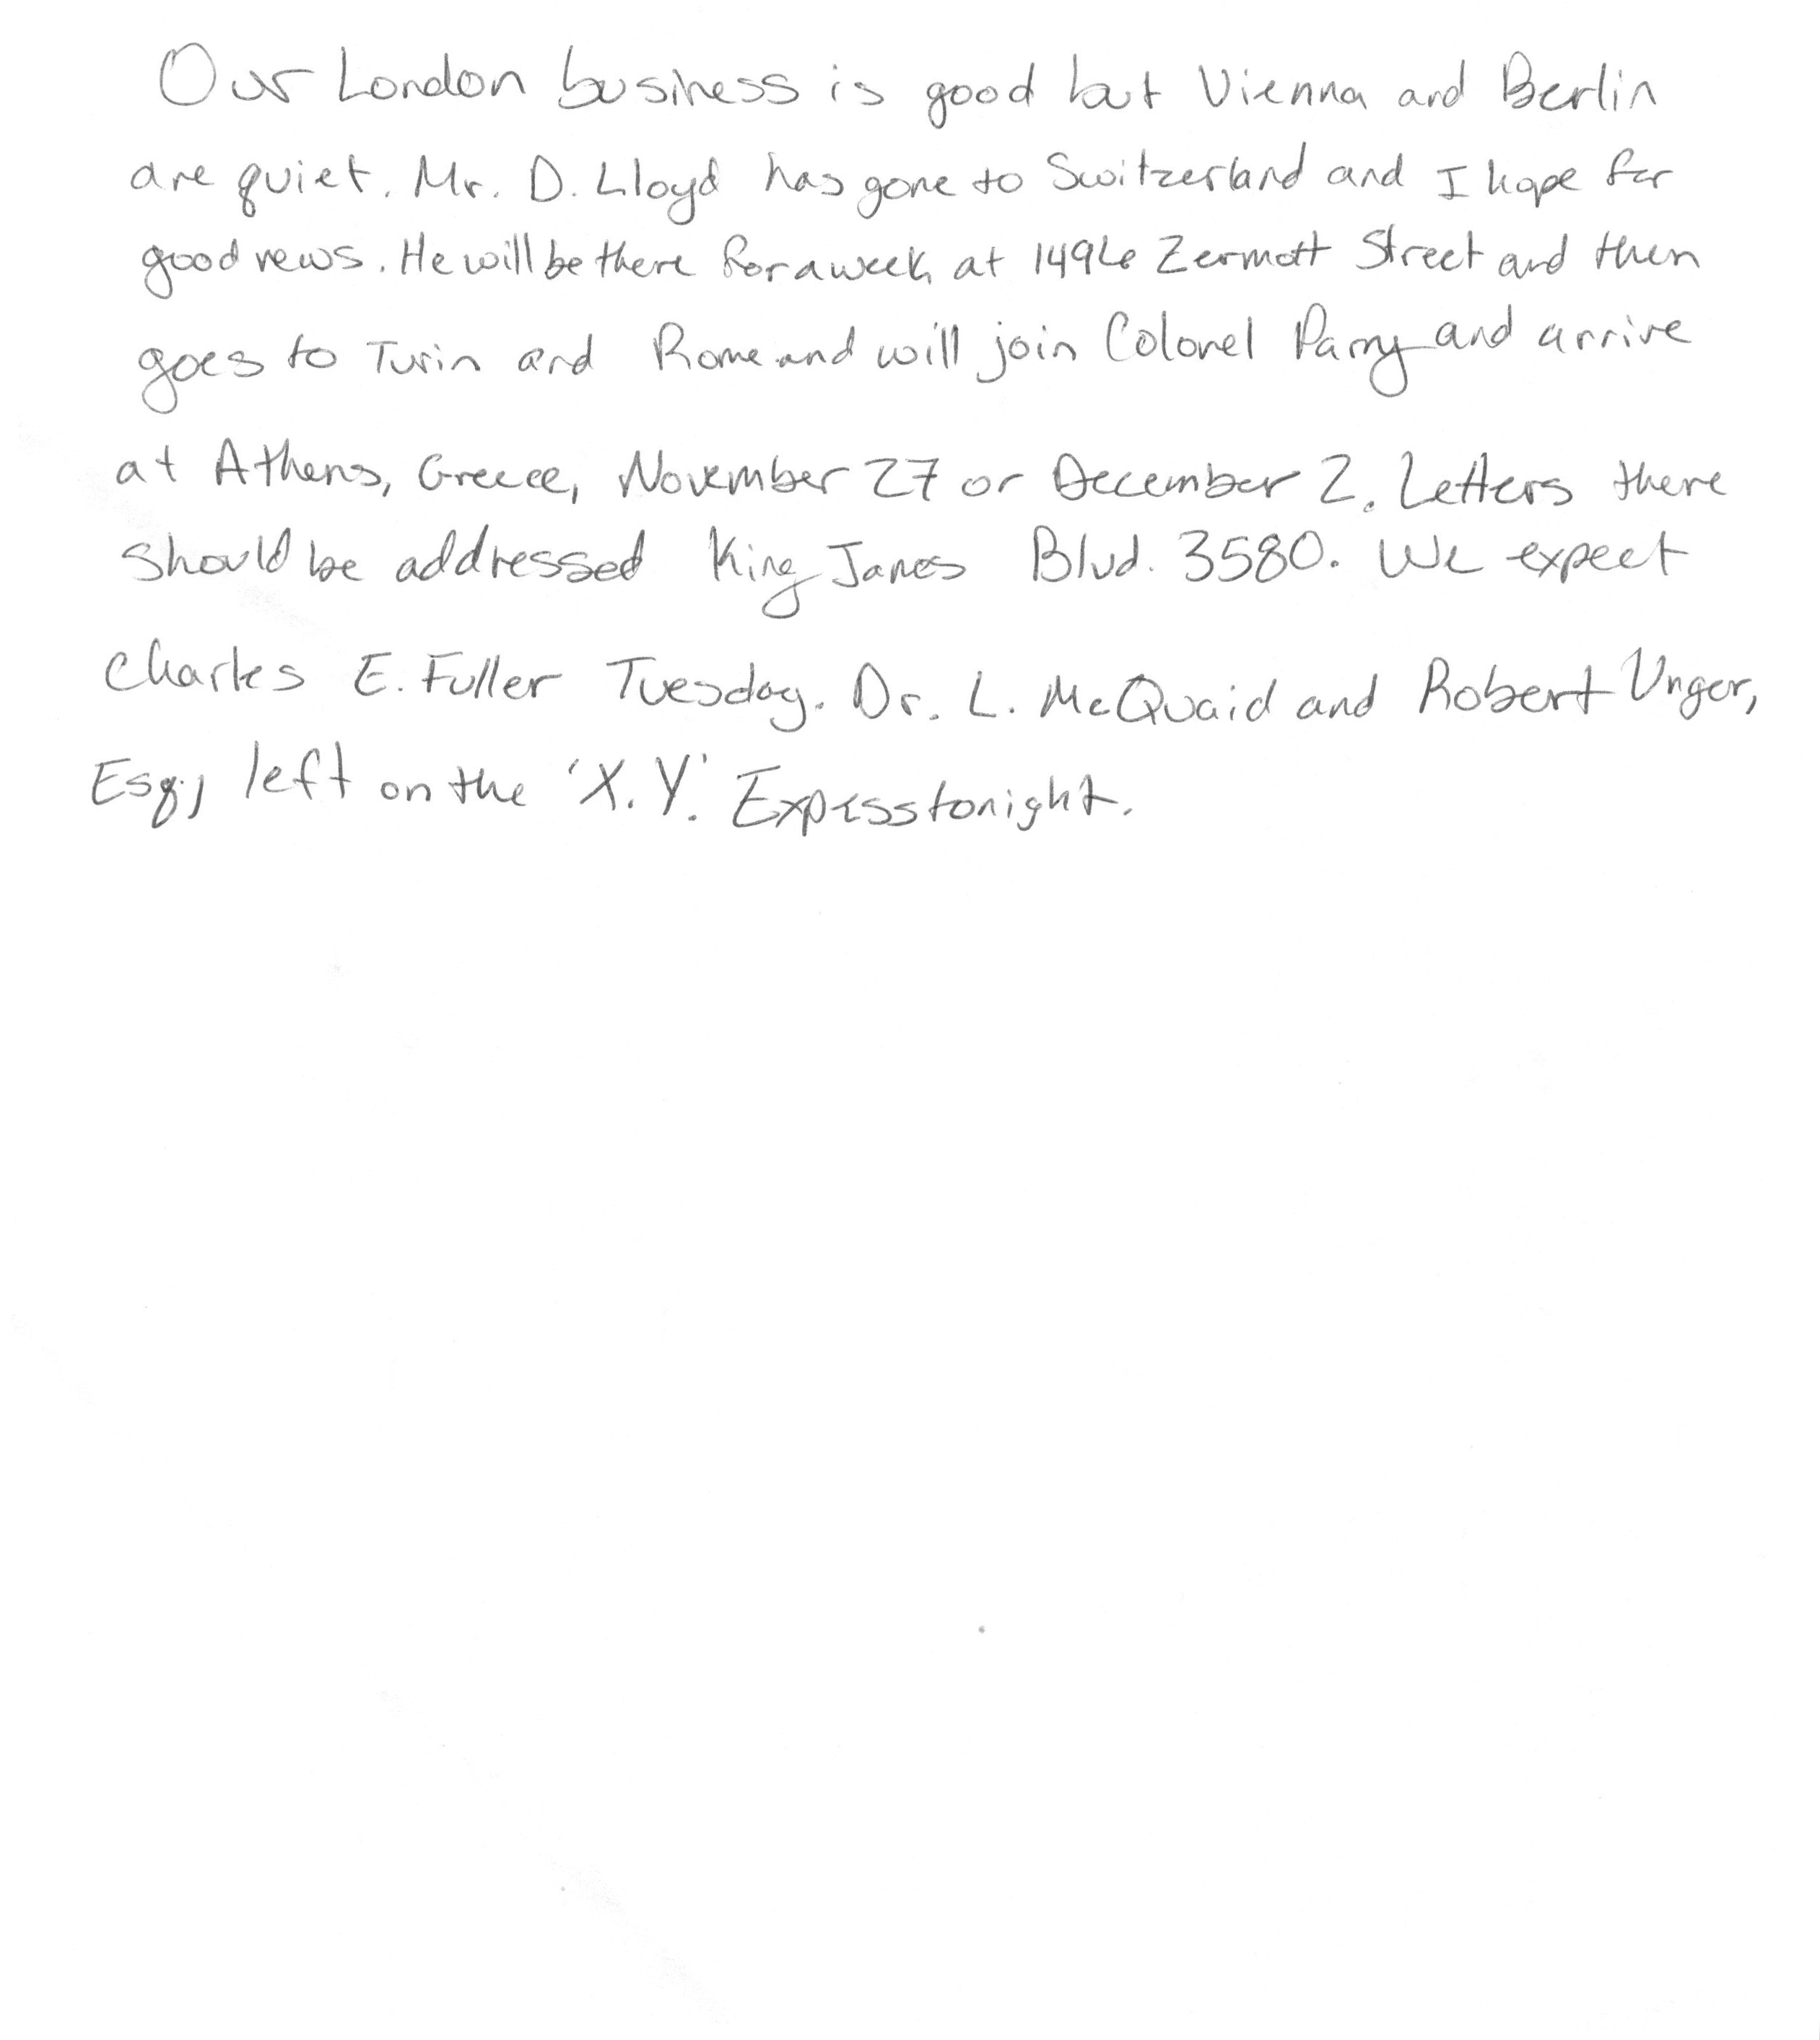 Our London business is good but Vienna and Berlin
are quiet. Mr. D. Lloyd has gone to Switzerland and I hope for
good news. He will be there for a week at 1496 Zermott Street and then
goes to Turin and Rome and will join Colonel Parry and arrive
at Athens, Greece, November 27 or December 2. Letters there
should be addressed King James Blvd. 3580. We expect
Charles E. Fuller Tuesday. Dr. L. McQuaid and Robert Unger,
Esq., left on the 'X.Y.' Express tonight.